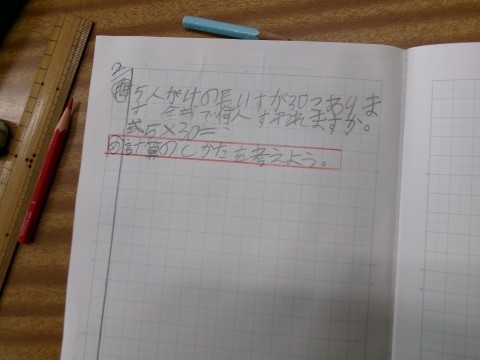 2
問 5人がけの長いすが30こありま
す 全部で何人すわれますか。
式5×30=
の計算のしかたを考えよう。